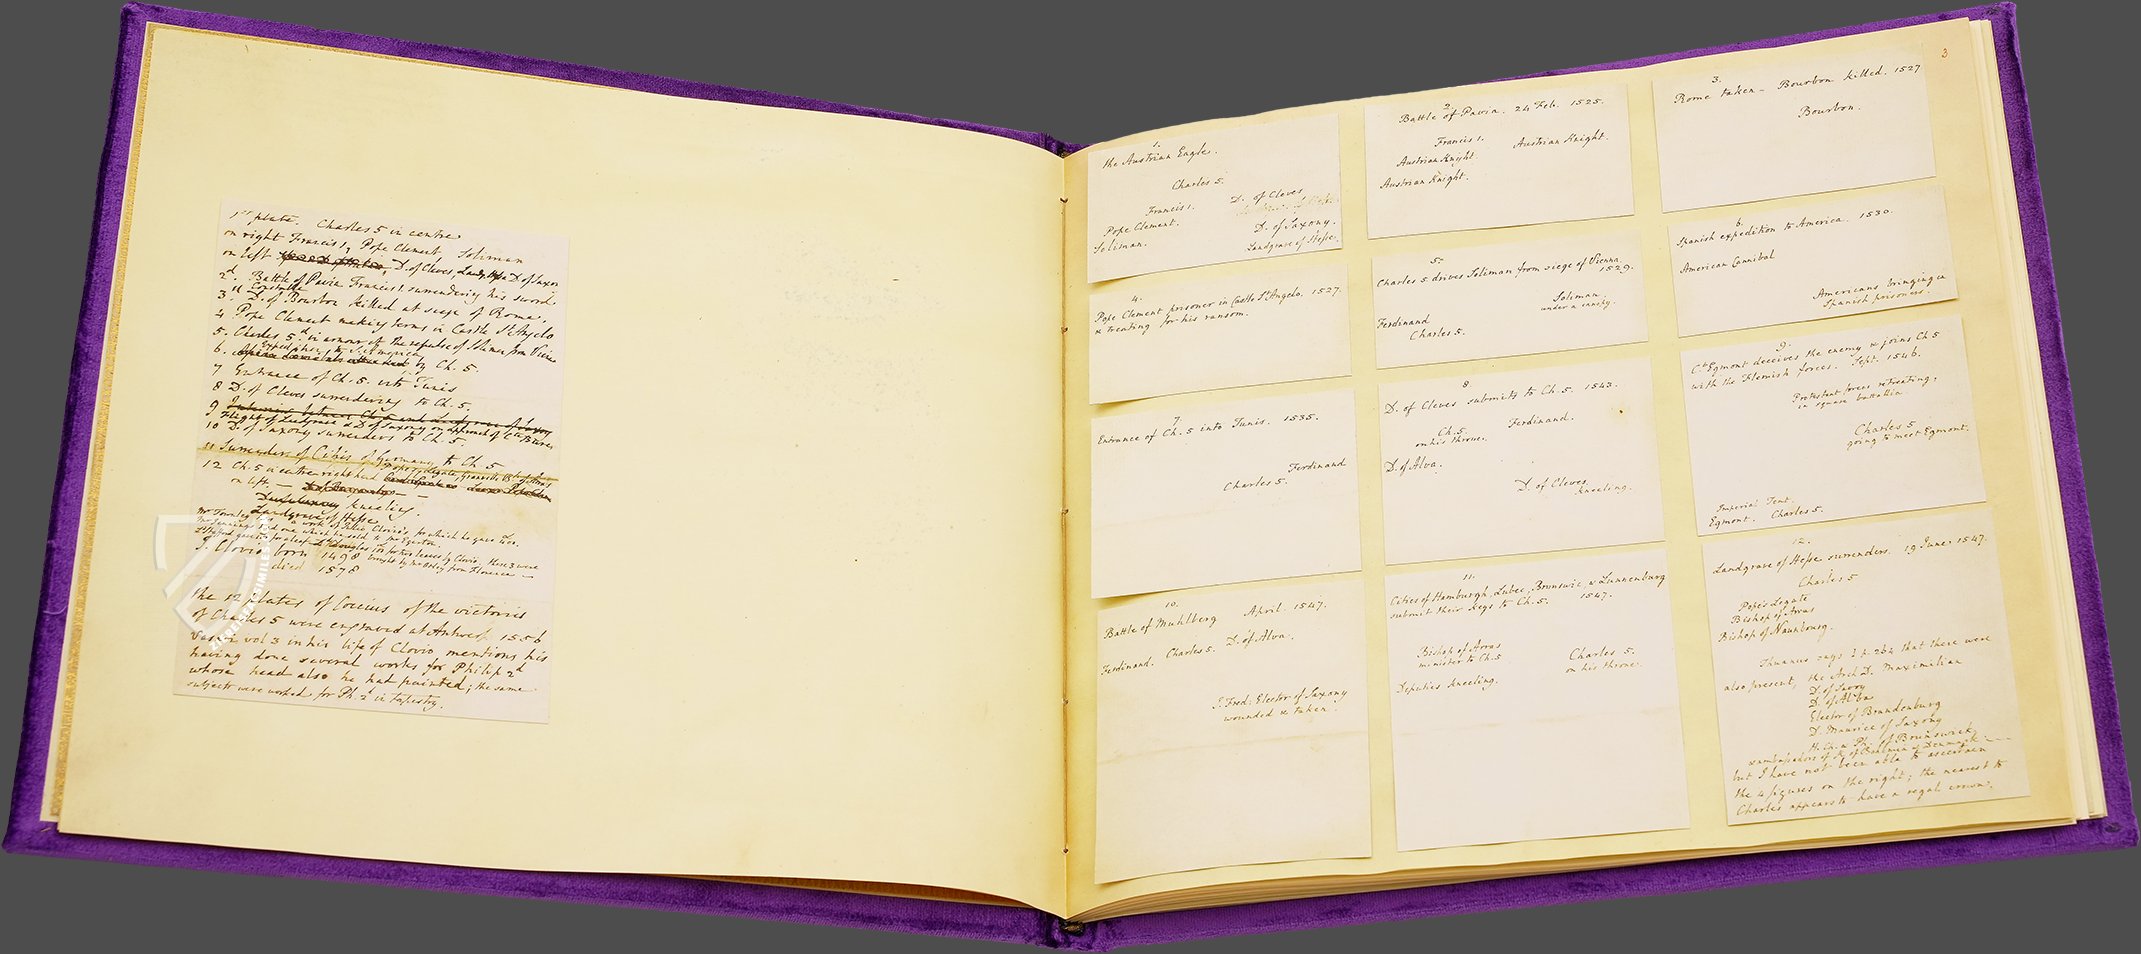 1st plate. Charles 5 in centre
on right Francis 1, Pope Clement, Soliman
on left D. of Cleves, D. of Saxon
2d Battle of Pavia Francis 1. surrendering his sword.
Constable
3. D. of Bourbon killed at siege of Rome.
4 Pope Clement making terms in Castle St Angelo
5. Charles 5 in armour at the repulse of Soliman from Vienna
6. by Ch. 5
7 Entrance of Ch. 5 into Tunis
8 D. of Cleves surrendering to Ch. 5.
9 Flight of Landgrave & D. of Saxony on approach of Ct Buren
10 D. of Saxony surrenders to Ch. 5
11 Surrender of Cities of Germany to Ch 5
12 Ch. 5 in centre right hand
on left.
kneeling.
Landgrave of Hesse
J. Clovio born 1498
died 1578
the 12 plates of Coccius of the victories
of Charles 5 were engraved at Antwerp 1556
Vasari vol 3 in his life of Clovio mentions his
having done several works for Philip 2d
whose head also he had painted; the same
subjects were worked for Ph 2d in tapestry.
3
1.
the Austrian Eagle.
Charles 5.
Francis 1. D. of Cleves
Pope Clement. D. of Saxony.
Soliman. Landgrave of Hesse.
2
Battle of Pavia. 24 Feb. 1525.
Francis 1. Austrian Knight.
Austrian Knight.
Austrian Knight.
3.
Rome taken - Bourbon killed. 1527
Bourbon.
4.
Pope Clement prisoner in Castle St Angelo. 1527.
& treating for his ransom.
5.
Charles 5 drives Soliman from siege of Vienna.
1529.
Soliman
under a canopy.
Ferdinand
Charles 5.
6.
Spanish expedition to America. 1530.
American Cannibal
Americans bringing in
Spanish prisoners.
7
Entrance of Ch. 5 into Tunis. 1535.
Ferdinand
Charles 5.
8
D. of Cleves submits to Ch. 5. 1543.
Ch. 5. Ferdinand.
on his throne.
D. of Alva.
D. of Cleves
kneeling.
9.
Ct Egmont deceives the enemy & joins Ch 5
with the Flemish forces. Sept. 1546.
Protestant forces retreating,
in square battallia
Charles 5
going to meet Egmont.
Imperial Tent.
Egmont. Charles 5.
10.
Battle of Muhlberg April. 1547.
Ferdinand. Charles 5. D. of Alva.
J. Fred: Elector of Saxony
wounded & taken.
11.
Cities of Hamburgh, Lubec, Brunswic, & Lunnenburg
submit their keys to Ch. 5. 1547.
Bishop of Arras
minister to Ch. 5 Charles 5.
on his throne.
Deputies kneeling.
12.
Landgrave of Hesse surrenders. 19 June 1547.
Charles 5
Pope's Legate
Bishop of Arras
Bishop of Naunbourg.
Thuanus says 1. p. 264 that there were
also present, the Arch D. Maximilian
D. of Savoy
D. of Alba
Elector of Brandenburg
D. Maurice of Saxony
of Brunswick
& ambassadors of K. of Bohemia & Denmark
but I have not been able to ascertain
the 4 figures on the right; the nearest to
Charles appears to have a regal crown.